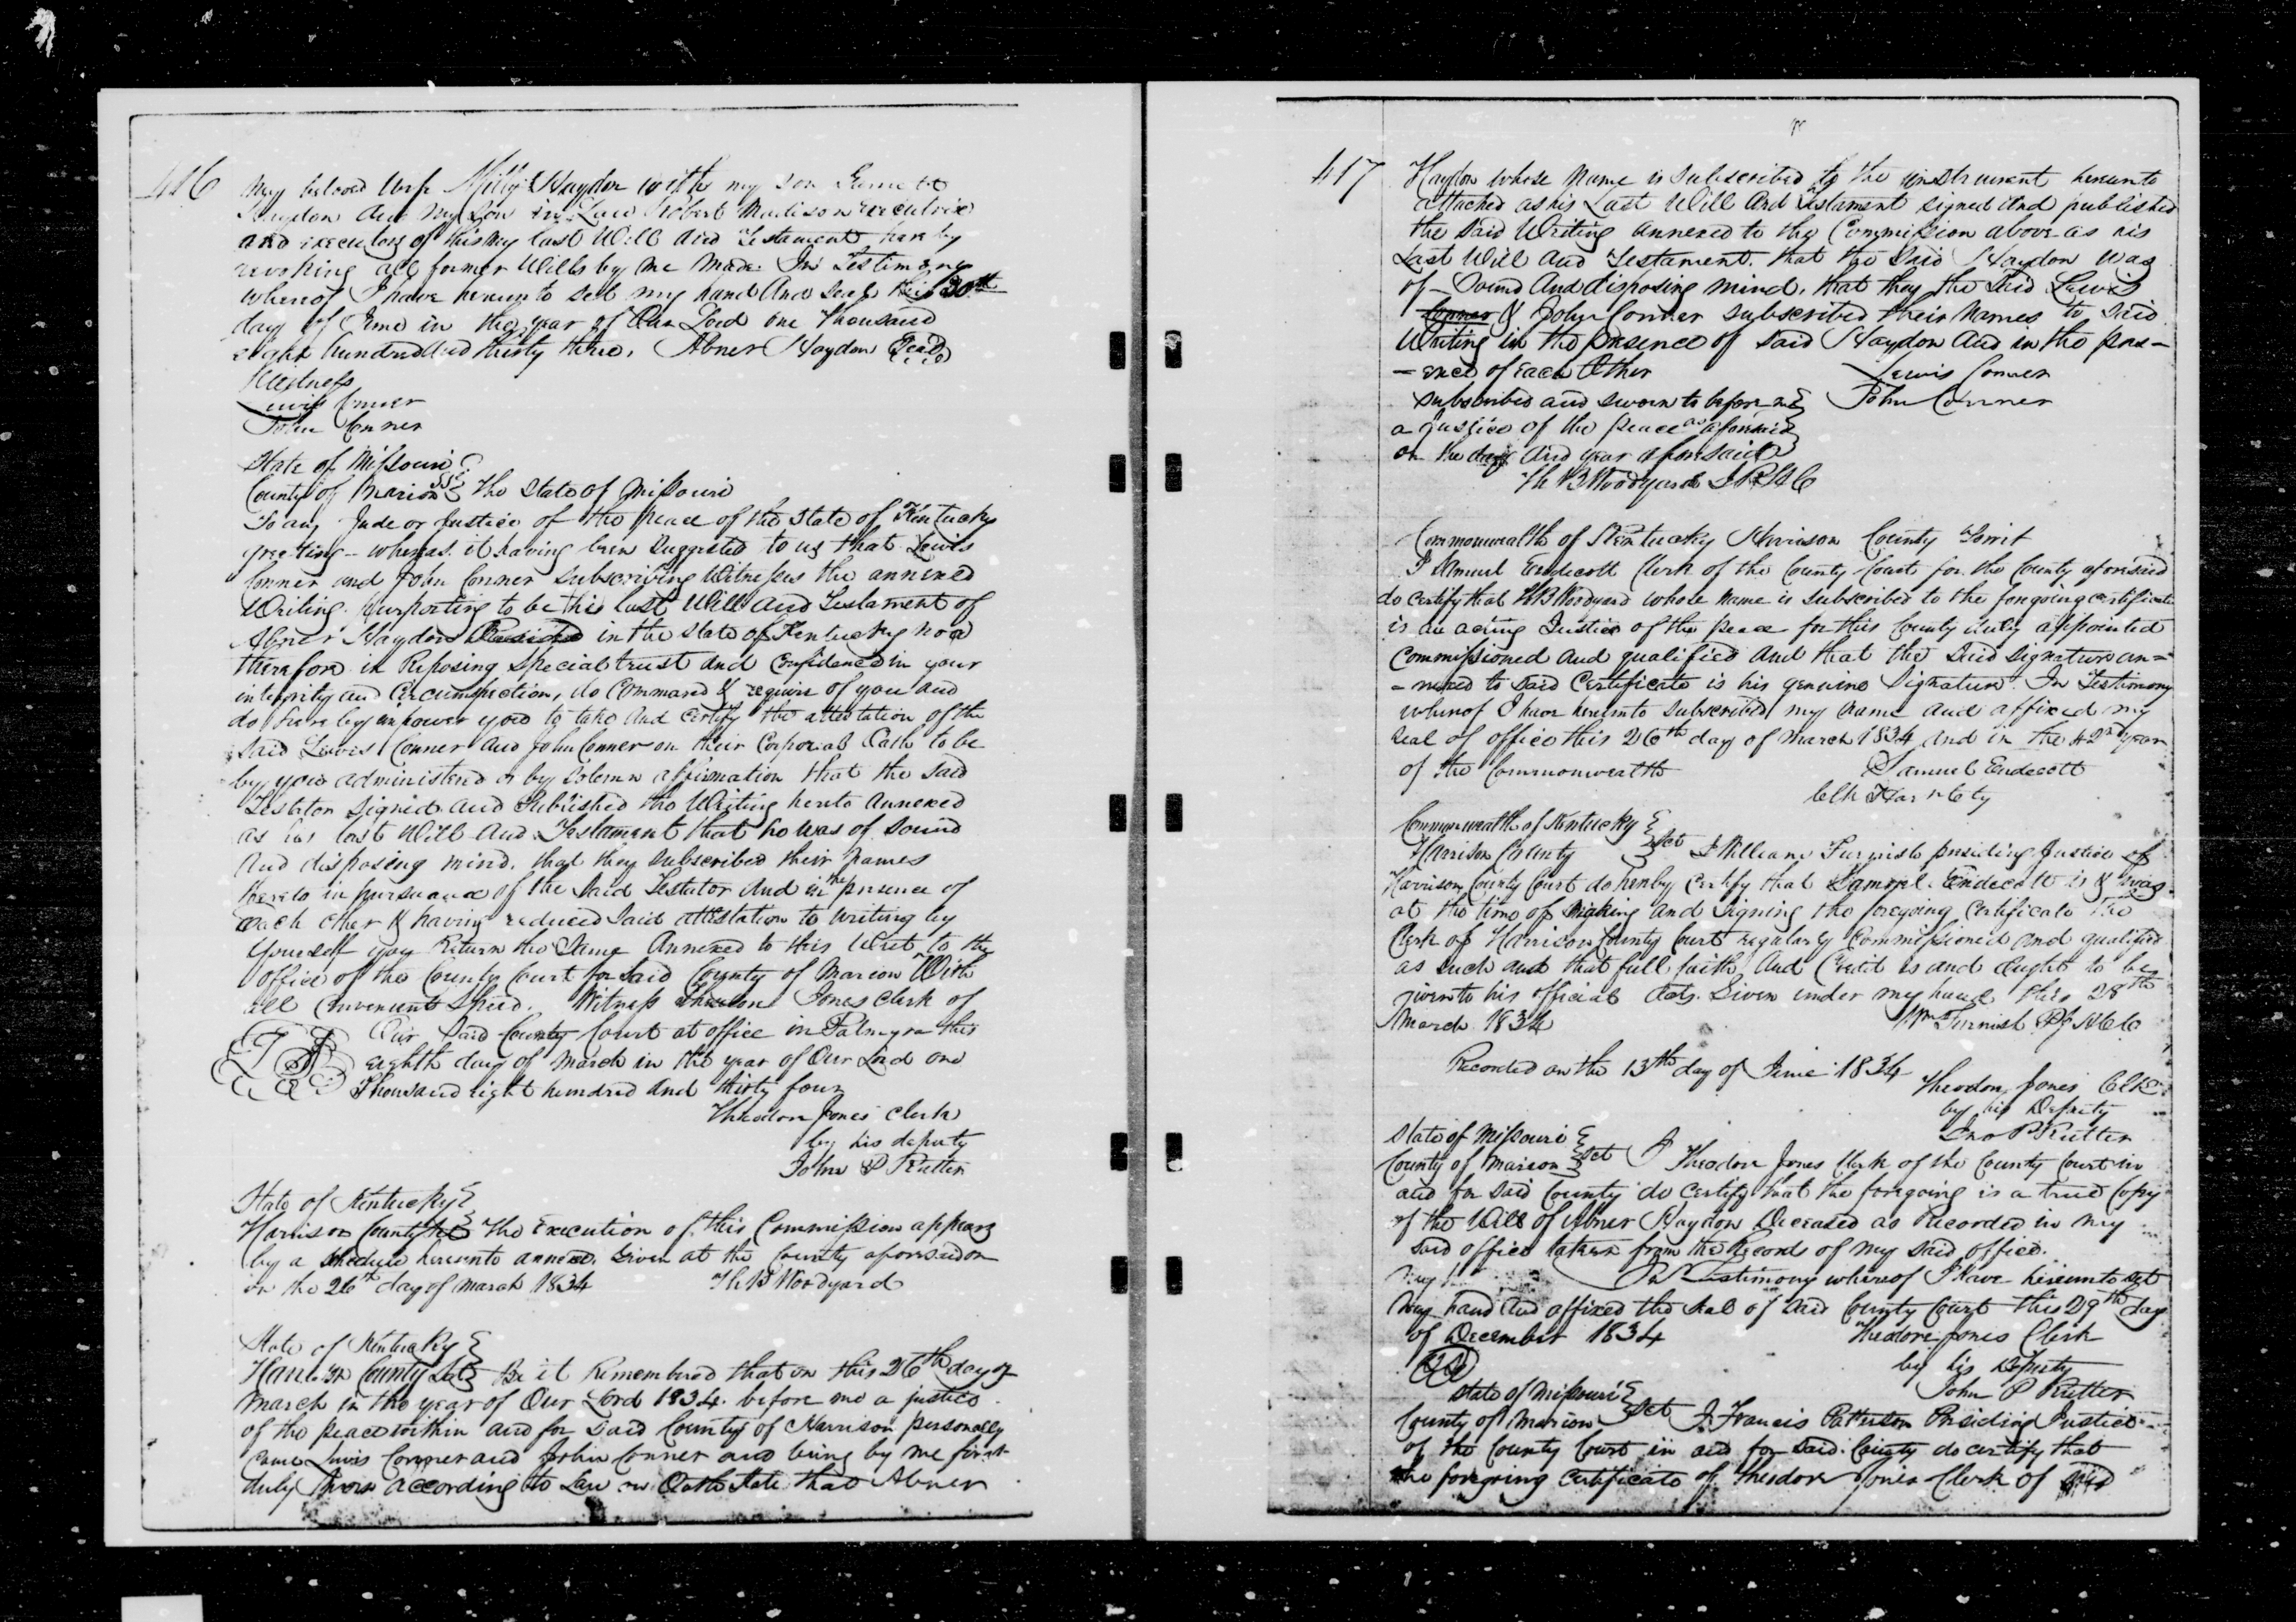 416
My beloved Wife Milly Haydon with my son
Haydon and my son in Law Robert Madison executrix
and executors of this my last Will and Testament hereby
revoking all former Wills by me made. In Testimony
whereof I have hereunto set my hand and seal this 30th
day of June in the year of Our Lord one thousand
eight hundred and thirty three. Abner Haydon Seal
Witness
Lewis Conner
John Conner
State of Missouri
County of Marion SS The State of Missouri
To any Jude or Justice of the peace of the State of Kentucky
greeting - whereas it having been Suggested to us that Lewis
Conner and John Conner subscribing Witnesses the annexed
Writing purporting to be the last Will and Testament of
Abner Haydon Resides in the State of Kentucky now
therefore in Reposing Special trust and Confidence in your
integrity and Circumspection, do Command & require of you and
do hereby impower you to take and certify the attestation of the
said Lewis Conner and John Conner on their Corporal Oath to be
by you administered or by solemn affirmation that the said
Testator Signed and Published the Writing hereto annexed
as his last Will and Testament that he was of sound
and disposing mind. that they subscribed their names
hereto in pursuance of the said Testator and in the presence of
each other & having reduced said attestation to writing by
Yourself you Return the Same annexed to this Writ to the
office of the County Court for said County of Marion With
all Convenient Speed. Witness Theodore Jones Clerk of
Our said County Court at office in Palmyra this
eighth day of March in the year of Our Lord one
Thousand eight hundred and thirty four
Theodore Jones Clerk
by his deputy
John P Rutter
State of Kentucky
Harrison County Sct The Execution of this Commission appears
by a Schedule hereunto annexed. Given at the County aforesaid on
on the 26th day of March 1834 Th B Woodyard
State of Kentucky
Harrison County Sct Be it Remembered that on this 26th day of
March in the year of Our Lord 1834. before me a justice
of the peace within and for said County of Harrison personally
came Lewis Conner and John Conner and being by me first
duly sworn according to Law on Oath State that Abner
417
Haydon whose name is subscribed to the instrument hereunto
attached as his Last Will and Testament signed and published
the said Writing annexed to the Commission above as his
Last Will and Testament. that the said Haydon was
of Sound and disposing mind. that they the said Lewis
Conner & John Conner subscribed their names to said
Writing in the presence of said Haydon and in the pres-
-ence of each Other Lewis Conner
subscribed and sworn to before me John Conner
a justice of the peace as aforesaid
on the day and year aforesaid
Th B Woodyard J P H C
Commonwealth of Kentucky Harrison County towit
I Samuel Endecott Clerk of the County Court for the County aforesaid
do certify that Th B Woodyard whose name is subscribed to the foregoing certificate
is an acting Justice of the peace for this County duly appointed
Commissioned and qualified and that the said signature an=
=nexed to said Certificate is his genuine Signature. In Testimony
whereof I have hereunto subscribed my name and affixed my
seal of office this 26th day of March 1834 and in the 42nd year
of the Commonwealth Samuel Endecott
Clk Har n Cty
Commonwealth of Kentucky
Harrison County Sct I William Furnish presiding Justice of
Harrison County Court do hereby certify that Samuel Endecott is & was
at the time of making and signing the foregoing Certificate the
Clerk of Harrison County Court regularly Commissioned and qualified
as such and that full faith and Credit is and ought to be
given to his official Acts. Given under my hand this 28th
March 1834 Wm Furnish P J H C C
Recorded on the 13th day of June 1834
Theodore Jones Clk
by his Deputy
Jno P Rutter
State of Missouri
County of Marion Sct I Theodore Jones Clerk of the County Court in
and for said County do certify that the foregoing is a true Copy
of the Will of Abner Haydon Deceased as Recorded in my
said office taken from the Records of my said office.
My In Testimony whereof I have hereunto set
my hand and affixed the seal of said County Court this 29th day
of December 1834 Theodore Jones Clerk
by his Deputy
John P Rutter
State of Missouri
County of Marion Sct I Francis Patterson Presiding Justice
of the County Court in and for said County do certify that
the foregoing Certificate of Theodore Jones Clerk of said